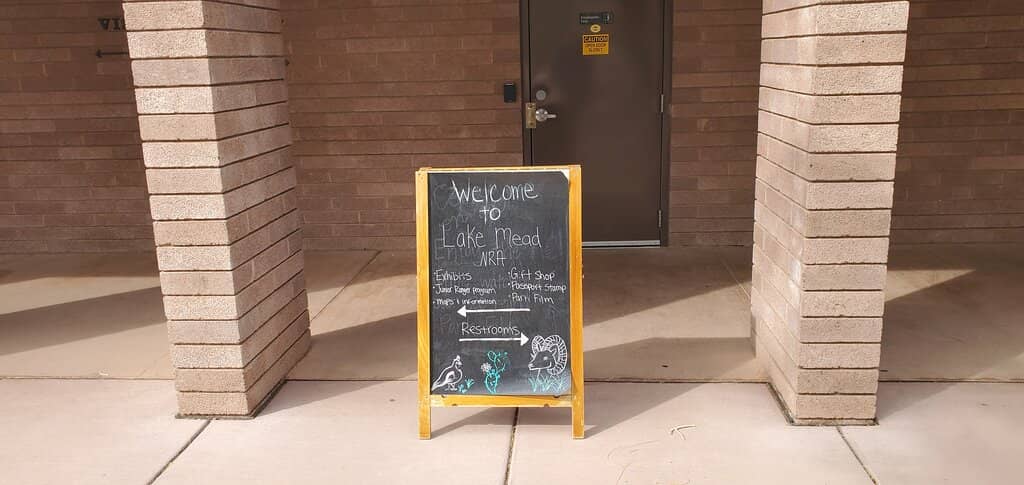 VI
CAUTION
Welcome
to
Lake Mead
NRA
•Exhibits •Gift shop
•Junior Ranger program •Passport Stamp
•Maps & information •Park Film
Restrooms